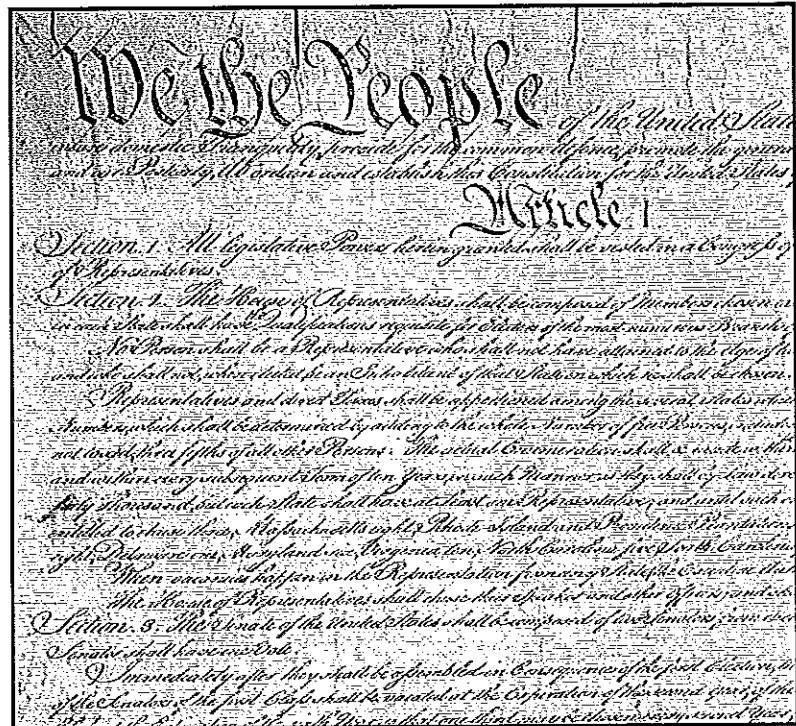 We the People of the United Stat
insure domestic Tranquility, provide for the common defence, promote the genera
and our Posterity, do ordain and establish this Constitution for the United States
Article 1
Section. 1. All legislative Powers herein granted shall be vested in a Congress of
of Representatives.
Section. 2. The House of Representatives shall be composed of Members chosen
in each State shall have Qualifications requisite for Electors of the most numerous Branch
No Person shall be a Representative who shall not have attained to the Age of
and who shall not, when elected, be an Inhabitant of that State in which he shall be chosen
Representatives and direct Taxes shall be apportioned among the several States
Numbers, which shall be determined by adding to the whole Number of free Persons,
not taxed, three fifths of all other Persons. The actual Enumeration shall be made
and within every subsequent Term of ten Years, in such Manner as they shall by Law
thirty Thousand, but each State shall have at Least one Representative; and until such
entitled to chuse three, Massachusetts eight, Rhode Island and Providence Plantations
eight, Delaware one, Maryland six, Virginia ten, North Carolina five, South Carolina
When vacancies happen in the Representation from any State, the Executive
The House of Representatives shall chuse their Speaker and other Officers; and
Section. 3. The Senate of the United States shall be composed of two Senators from
Senator shall have one Vote.
Immediately after they shall be assembled in Consequence of the first Election,
of the Senators of the first Class shall be vacated at the Expiration of the second Year, of the